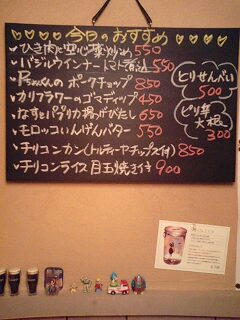 今日のおすすめ
ひき肉と空心菜炒め 550
バジルウインナートマト煮込 550
Pちゃんの ポークチョップ 850
カリフラワーのゴマディップ 450
なすとパプリカ揚げびたし 650
モロッコいんげんバター 550
チリコンカン(トルティーヤチップス付) 850
チリコンライス 目玉焼き付 900
とりせんべい
500
ピリ辛
大根
300